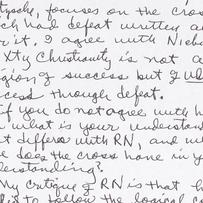 focuses on the cros
ch had defeat written a
r it. I agree with Niebu
Xty Christianity is not a
gion of success but
cess through defeat.
f you do not agree with h
what is your understand
t differs with RN, and w
e does the cross have in y
derstanding?
My critique of RN is that h
to follow the logical c